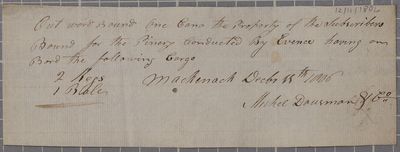 12/11/1806
Out word Bound One Cano the Property of the Subscribers
Bound for the Pinery Conducted By Evence having on
Bord the following Cargo
2 Kegs
1 Bale
Mackenack Decbr 11th 1806
Michel Dousman & Co